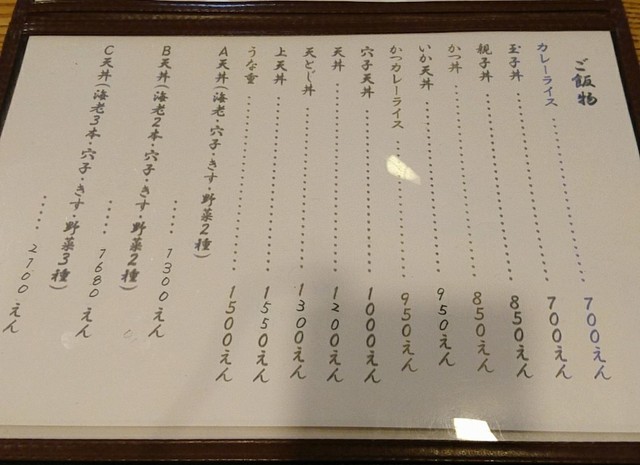 ご飯物
カレーライス ・・・・・・ 700えん
玉子丼 ・・・・・・ 700えん
親子丼 ・・・・・・ 850えん
かつ丼 ・・・・・・ 850えん
いか天丼 ・・・・・・ 950えん
かつカレーライス ・・・・・・ 950えん
穴子天丼 ・・・・・・ 1000えん
天丼 ・・・・・・ 1200えん
天とじ丼 ・・・・・・ 1300えん
上天丼 ・・・・・・ 1550えん
うな重 ・・・・・・ 1500えん
A天丼(海老・穴子・きす・野菜2種)
・・・・・ 1300えん
B天丼(海老2本・穴子・きす・野菜2種)
・・・・・ 1680えん
C天丼(海老3本・穴子・きす・野菜3種)
・・・・・ 2100えん